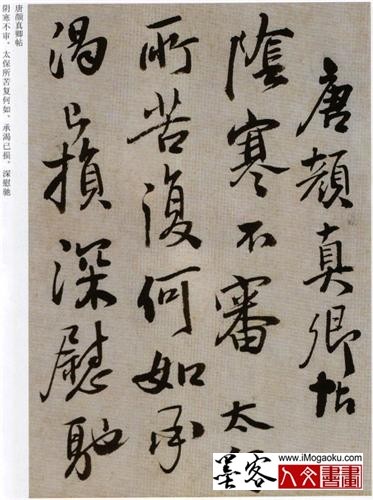 唐顏真卿帖
陰寒不審太保
所苦復何如承
渴已損深慰馳
唐颜真卿帖
阴寒不审，太保所苦复何如，承渴已损，深慰驰
墨客
www.iMogaoku.com
人文書畫